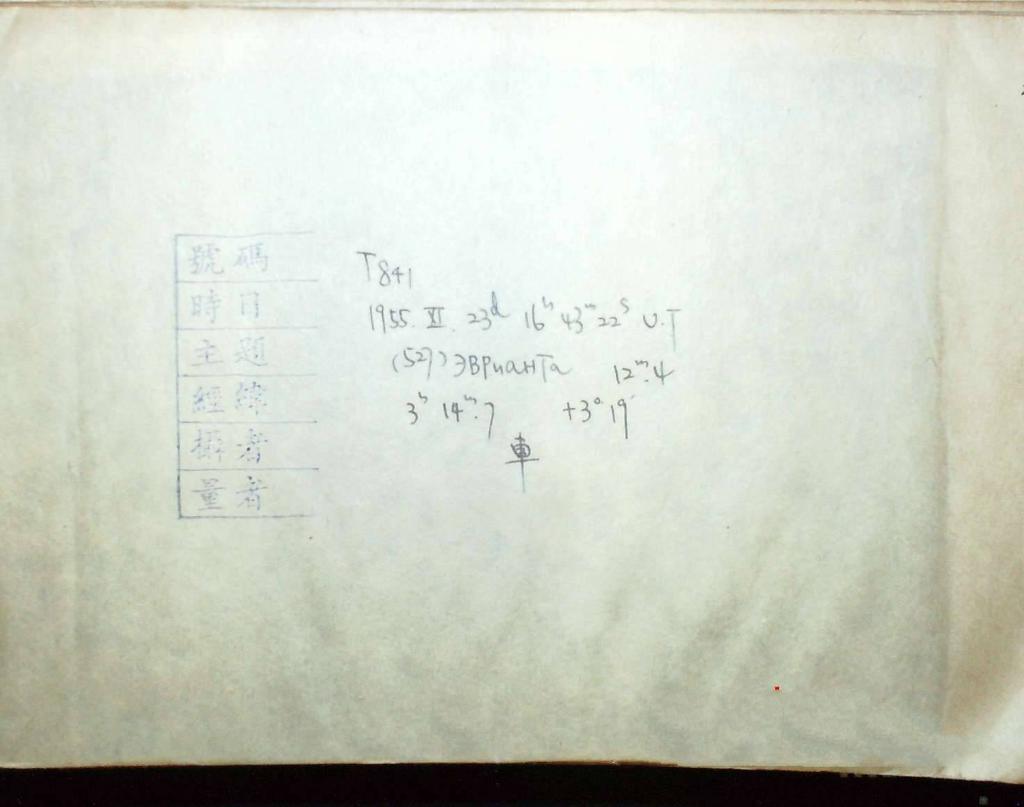 號碼 T841
時日 1955. XI. 23d 16h 43m 22s U.T
主題 (527) ЭВРиаНТа 12m.4
經緯 3h 14m.7 +3° 19'
攝者 車
量者